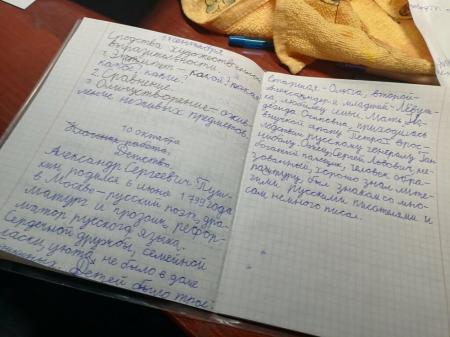 сентября
Средства художественной
выразительности.
1. Эпитет - какой? какая?
какое? какие?
2. Сравнение.
3. Олицетворение - ожив-
ление неживых предметов.
10 октября
Классная работа.
Детство
Александр Сергеевич Пуш-
кин родился 6 июня 1799 года
в Москве - русский поэт, дра-
матург и прозаик, рефор-
матор русского языка.
Сердечной дружбы, семейной
ласки, уюта не было в доме
Детей было трое:
Старшая - Ольга, второй -
Александр и младший - Лёвуш-
ка, любимец семьи. Мать На-
дежда Осиповна, приходилась
внучкой арапу Петра
русскому генералу Ган-
нибалу. Отец, Сергей Львович, не-
богатый помещик, человек обра-
зованный, хорошо знал
литературу, был знаком со мно-
гими русскими писателями и
сам немного писал.